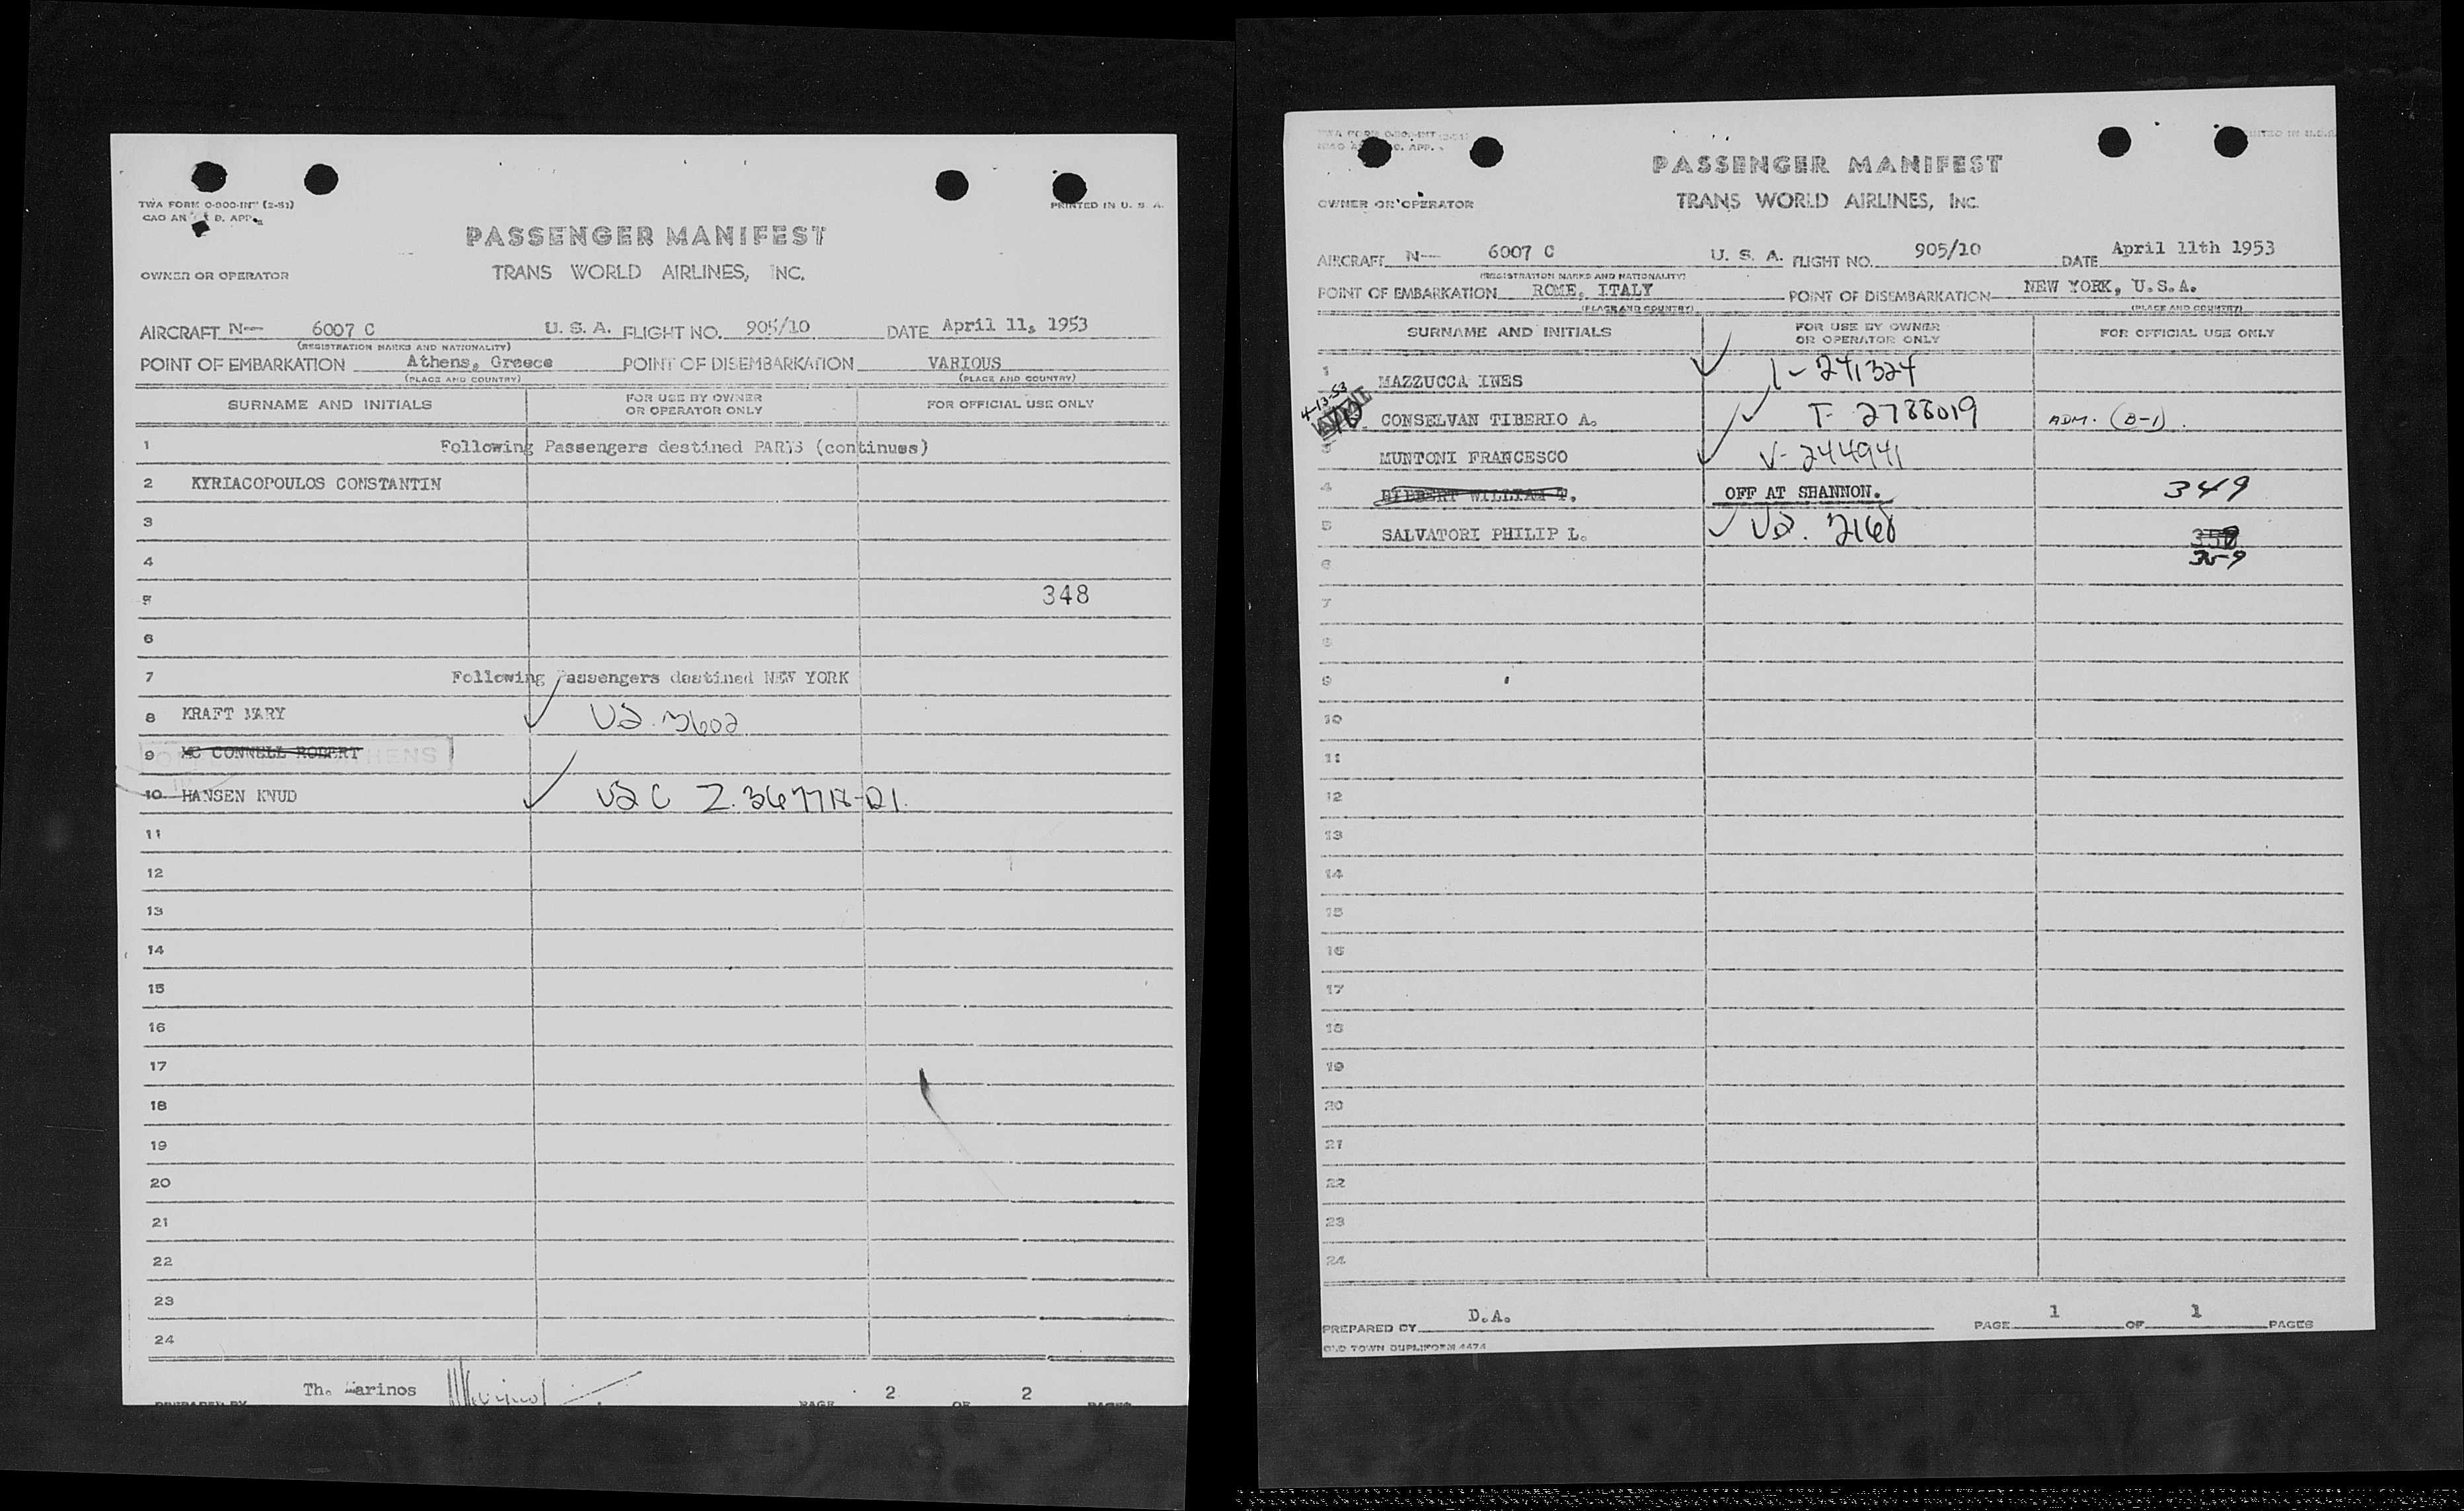 TWA FORM 0-900-INT (2-51)
PRINTED IN U. S. A.
PASSENGER MANIFEST
OWNER OR OPERATOR
TRANS WORLD AIRLINES, INC.
AIRCRAFT N-- 6007 C U. S. A. FLIGHT NO. 905/10 DATE April 11, 1953
(REGISTRATION MARKS AND NATIONALITY)
POINT OF EMBARKATION Athens, Greece POINT OF DISEMBARKATION VARIOUS
(PLACE AND COUNTRY) (PLACE AND COUNTRY)
SURNAME AND INITIALS FOR USE BY OWNER OR OPERATOR ONLY FOR OFFICIAL USE ONLY
1 Following Passengers destined PARIS (continues)
2 KYRIACOPOULOS CONSTANTIN
3
4
5 348
6
7 Following Passengers destined NEW YORK
8 KRAFT MARY US. 3602
9 MC CONNELL ROBERT
10 HANSEN KNUD
11
12
13
14
15
16
17
18
19
20
21
22
23
24
Th. Marinos 2 2
PREPARED BY PAGE OF PAGES
PRINTED IN U.S.A.
PASSENGER MANIFEST
OWNER OR OPERATOR
TRANS WORLD AIRLINES, INC.
AIRCRAFT N-- 6007 C U. S. A. FLIGHT NO. 905/10 DATE April 11th 1953
(REGISTRATION MARKS AND NATIONALITY)
POINT OF EMBARKATION ROME, ITALY POINT OF DISEMBARKATION NEW YORK, U.S.A.
(PLACE AND COUNTRY) (PLACE AND COUNTRY)
SURNAME AND INITIALS FOR USE BY OWNER OR OPERATOR ONLY FOR OFFICIAL USE ONLY
1 MAZZUCCA INES I-241324
4-13-53
CONSELVAN TIBERIO A. T-2788019 ADM. (B-1).
3 MUNTONI FRANCESCO V-244941
4 OFF AT SHANNON. 349
5 SALVATORI PHILIP L. US. 2168
359
6
7
8
9
10
11
12
13
14
15
16
17
18
19
20
21
22
23
24
PREPARED BY D.A. PAGE 1 OF 1 PAGES
OLD TOWN DUPLIFORM 4474